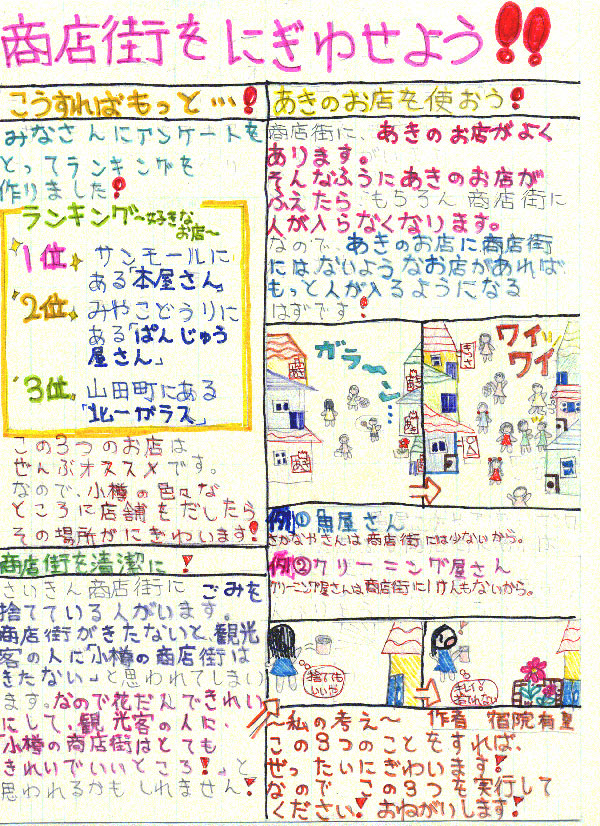 商店街をにぎわせよう!!
こうすればもっと…!
みなさんにアンケートを
とってランキングを
作りました!
ランキング~好きな
お店~
1位 サンモールに
ある「本屋さん」
2位 みやこどうりに
ある「ぱんじゅう
屋さん」
3位 山田町にある
「北一ガラス」
この3つのお店は
ぜんぶオススメです。
なので、小樽の色々な
ところに店舗をだしたら
その場所がにぎわいます!
商店街を清潔に!
さいきん商店街に ごみを
捨てている人がいます。
商店街がきたないと、観光
客の人に「小樽の商店街は
きたない」と思われてしまい
ます。なので花だんできれい
にして、観光客の人に、
小樽の商店街はとても
きれいでいいところ!」と
思われるかもしれません!
あきのお店を使おう!
商店街に、あきのお店がよく
あります。
そんなふうにあきのお店が
ふえたら もちろん商店街に
人が入らなくなります。
なので、あきのお店に商店街
にはないようなお店があれば
もっと人が入るようになる
はずです!
ガラ〜ン…
ワイッ
ワイ
例① 魚屋さん
さかなやさんは商店街には少ないから。
例② クリーニング屋さん
クリーニング屋さんは商店街に1けんもないから。
捨てても
いいや
~私の考え~ 作者
この3つのことをすれば、
ぜったいにぎわいます!
なので この3つを実行して
ください!おねがりします!